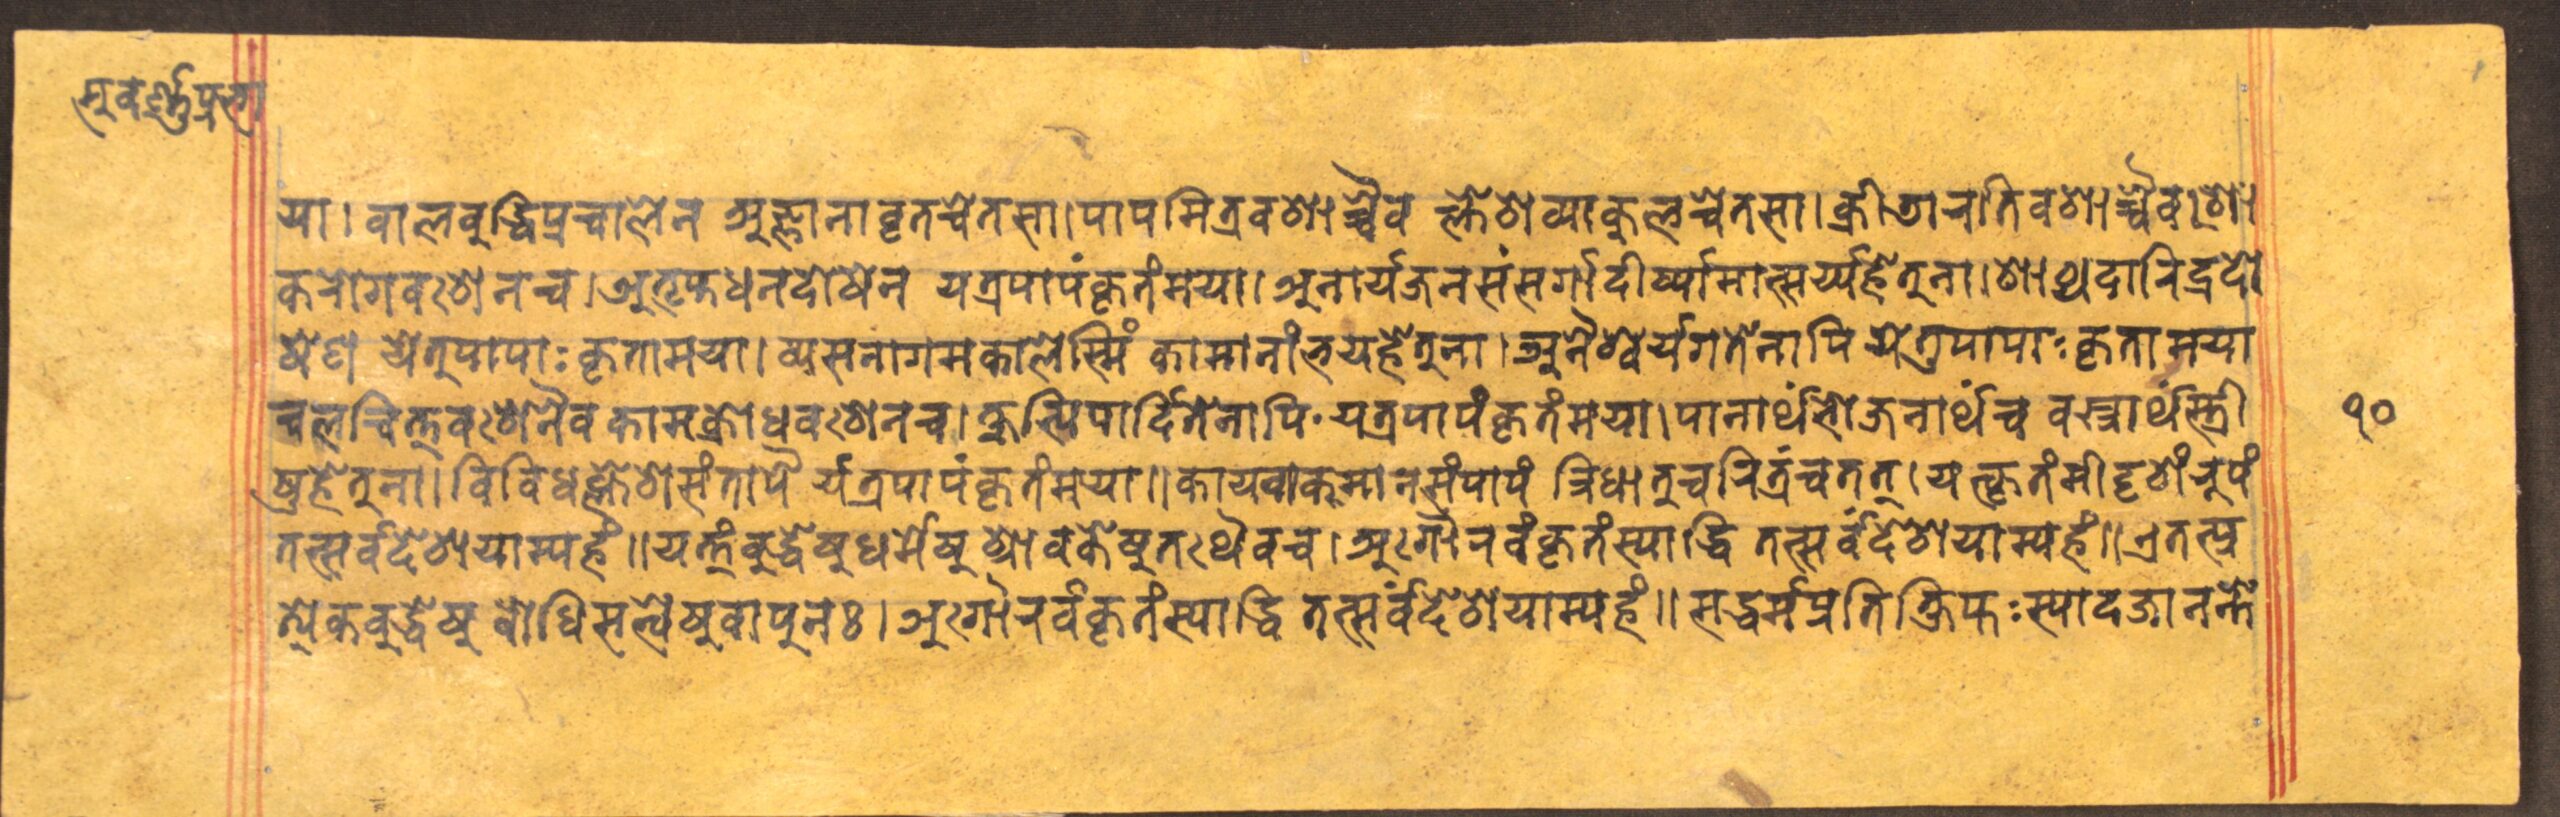 सुवर्ण्णप्रभा
या। वालवुद्धिप्रचालेन अज्ञानावृतचेतसा। पापमित्रवशाच्चैव क्लेशव्याकुलचेतसा। क्रीडारतिवशाच्चैव शो
करोगवशेनच। अतृप्तधनदोषेन यत्रपापंकृतंमया। अनार्यजनसंसर्गादीर्ष्यामात्सर्य्यहेतुना। शाथ्यदारिद्रदो
षेण येतुपापाः कृतामया। व्यसनागमकालेस्मिं कामानांभयहेतुना। अनैश्वर्यगतेनापि येतुपापाः कृतामया
चलचित्तवशेनैव कामक्रोधवशेनच। क्षुत्पिपार्दितेनापि यत्रपापंकृतंमया। पानार्थंभोजनार्थंच वस्त्रार्थंस्त्री
षुहेतुना। विविधक्लेशसंतापै र्यत्रपापंकृतंमया॥ कायवाक्मानसंपापं त्रिधातुचरितंचतत्। यत्कृतंमीदृशंरूपं
तत्सर्वदेशयाम्यहं॥ यत्तंवुद्धेषुधर्मेषु श्रावकेषुतथैवच। अगौरवंकृतंस्याद्धि तत्सर्वंदेशयाम्यहं॥ एतत्प्र
त्येकवुद्धेषु वोधिसत्त्वेषुवापुनः। अगौरवंकृतंस्याद्धि तत्सर्वंदेशयाम्यहं॥ सद्धर्मप्रतिक्षिप्तः स्यादजानन्ते
१०